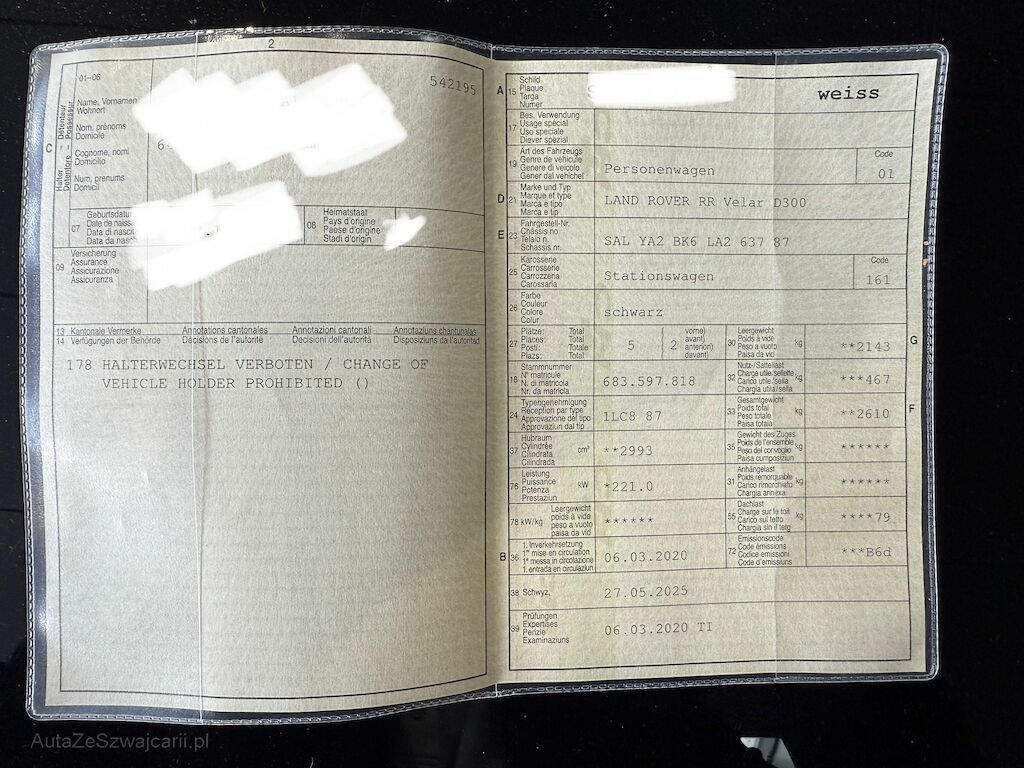 2
01–06
542195
C
Halter – Détenteur
Detentore – Possessur
Name, Vornamen
Wohnort
Nom, prénoms
Domicile
Cognome, nomi
Domicilio
Num, prenums
Domicil
6
07
Geburtsdatu
Date de naiss
Data di nascit
Data da nasch
08
Heimatstaat
Pays d'origine
Paese d'origine
Stadi d'origin
09
Versicherung
Assurance
Assicurazione
Assicuranza
13 Kantonale Vermerke Annotations cantonales Annotazioni cantonali Annotaziuns chantunalas
14 Verfügungen der Behörde Décisions de l'autorité Decisioni dell'autorità Disposiziuns da l'autoritad
178 HALTERWECHSEL VERBOTEN / CHANGE OF
VEHICLE HOLDER PROHIBITED ()
A
15
Schild
Plaque
Targa
Numer
weiss
17
Bes. Verwendung
Usage spécial
Uso speciale
Diever spezial
19
Art des Fahrzeugs
Genre de véhicule
Genere di veicolo
Gener dal vehichel
Personenwagen
Code
01
D
21
Marke und Typ
Marque et type
Marca e tipo
Marca e tip
LAND ROVER RR Velar D300
E
23
Fahrgestell-Nr.
Châssis no
Telaio n.
Schassis nr.
SAL YA2 BK6 LA2 637 87
25
Karosserie
Carrosserie
Carrozzeria
Carossaria
Stationswagen
Code
161
26
Farbe
Couleur
Colore
Colur
schwarz
27
Plätze: Total
Places: Total
Posti: Totale
Plazs: Total
5
( 2
vorne)
avant)
anteriori)
davant)
30
Leergewicht
Poids à vide
Peso a vuoto
Paisa da vid
kg
**2143
G
18
Stammnummer
N° matricule
N. di matricola
Nr. da matricla
683.597.818
32
Nutz-/Sattellast
Charge utile/sellette
Carico utile/sella
Chargia utila/sella
kg
***467
24
Typengenehmigung
Réception par type
Approvazione del tipo
Approvaziun dal tip
1LC8 87
33
Gesamtgewicht
Poids total
Peso totale
Paisa totala
kg
**2610
F
37
Hubraum
Cylindrée
Cilindrata
Cilindrada
cm³
**2993
35
Gewicht des Zuges
Poids de l'ensemble
Peso del convoglio
Paisa cumposiziun
kg
******
76
Leistung
Puissance
Potenza
Prestaziun
kW
*221.0
31
Anhängelast
Poids remorquable
Carico rimorchiato
Chargia annexa
kg
******
78 kW/kg
Leergewicht
poids à vide
peso a vuoto
paisa da vid
******
55
Dachlast
Charge sur le toit
Carico sul tetto
Chargia sin il tetg
kg
****79
B
36
1. Inverkehrsetzung
1re mise en circulation
1a messa in circolazione
1. entrada en circulaziun
06.03.2020
72
Emissionscode
Code émissions
Codice emissioni
Code d'emissiuns
***B6d
38 Schwyz,
27.05.2025
39
Prüfungen
Expertises
Perizie
Examinaziuns
06.03.2020 TI
AutaZeSzwajcarii.pl